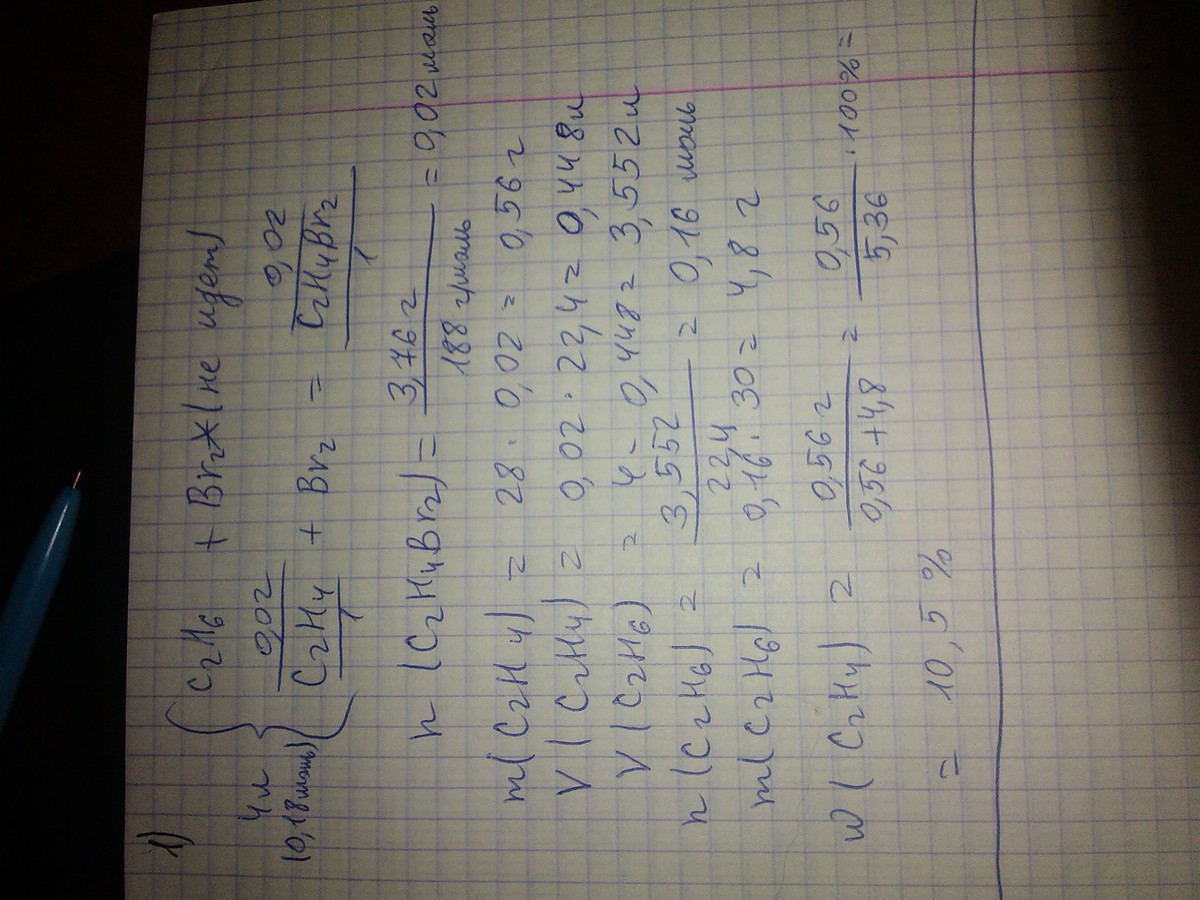 1)
C₂H₆ + Br₂ (не идет)
4л
(0,18 моль)
0,02 0,02
C₂H₄ + Br₂ = C₂H₄Br₂
1 1
n (C₂H₄Br₂) = 3,76 г / 188 г/моль = 0,02 моль
m (C₂H₄) = 28 · 0,02 = 0,56 г
V (C₂H₄) = 0,02 · 22,4 = 0,448 л
V (C₂H₆) = 4 - 0,448 = 3,552 л
n (C₂H₆) = 3,552 / 22,4 = 0,16 моль
m (C₂H₆) = 0,16 · 30 = 4,8 г
W (C₂H₄) = 0,56 г / 0,56 + 4,8 = 0,56 / 5,36 · 100% =
= 10,5 %